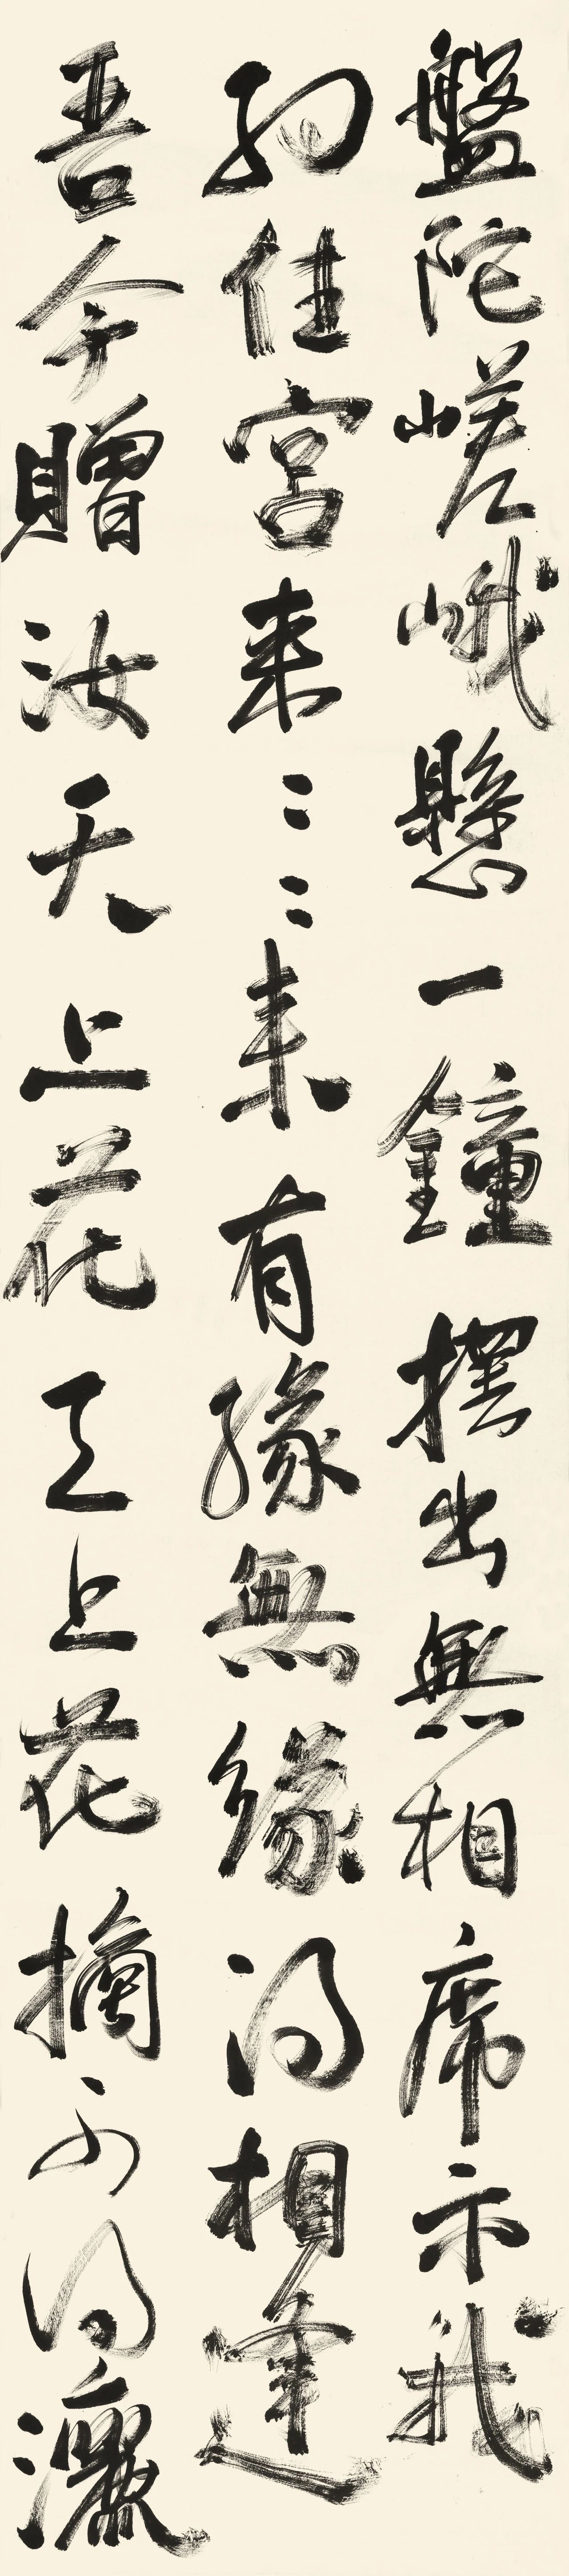 盤陀嵯峨懸一鐘擺出無相席示我
幻住宮來〻〻來有緣無緣得相逢
吾今贈汝天上花天上花摘不得灑